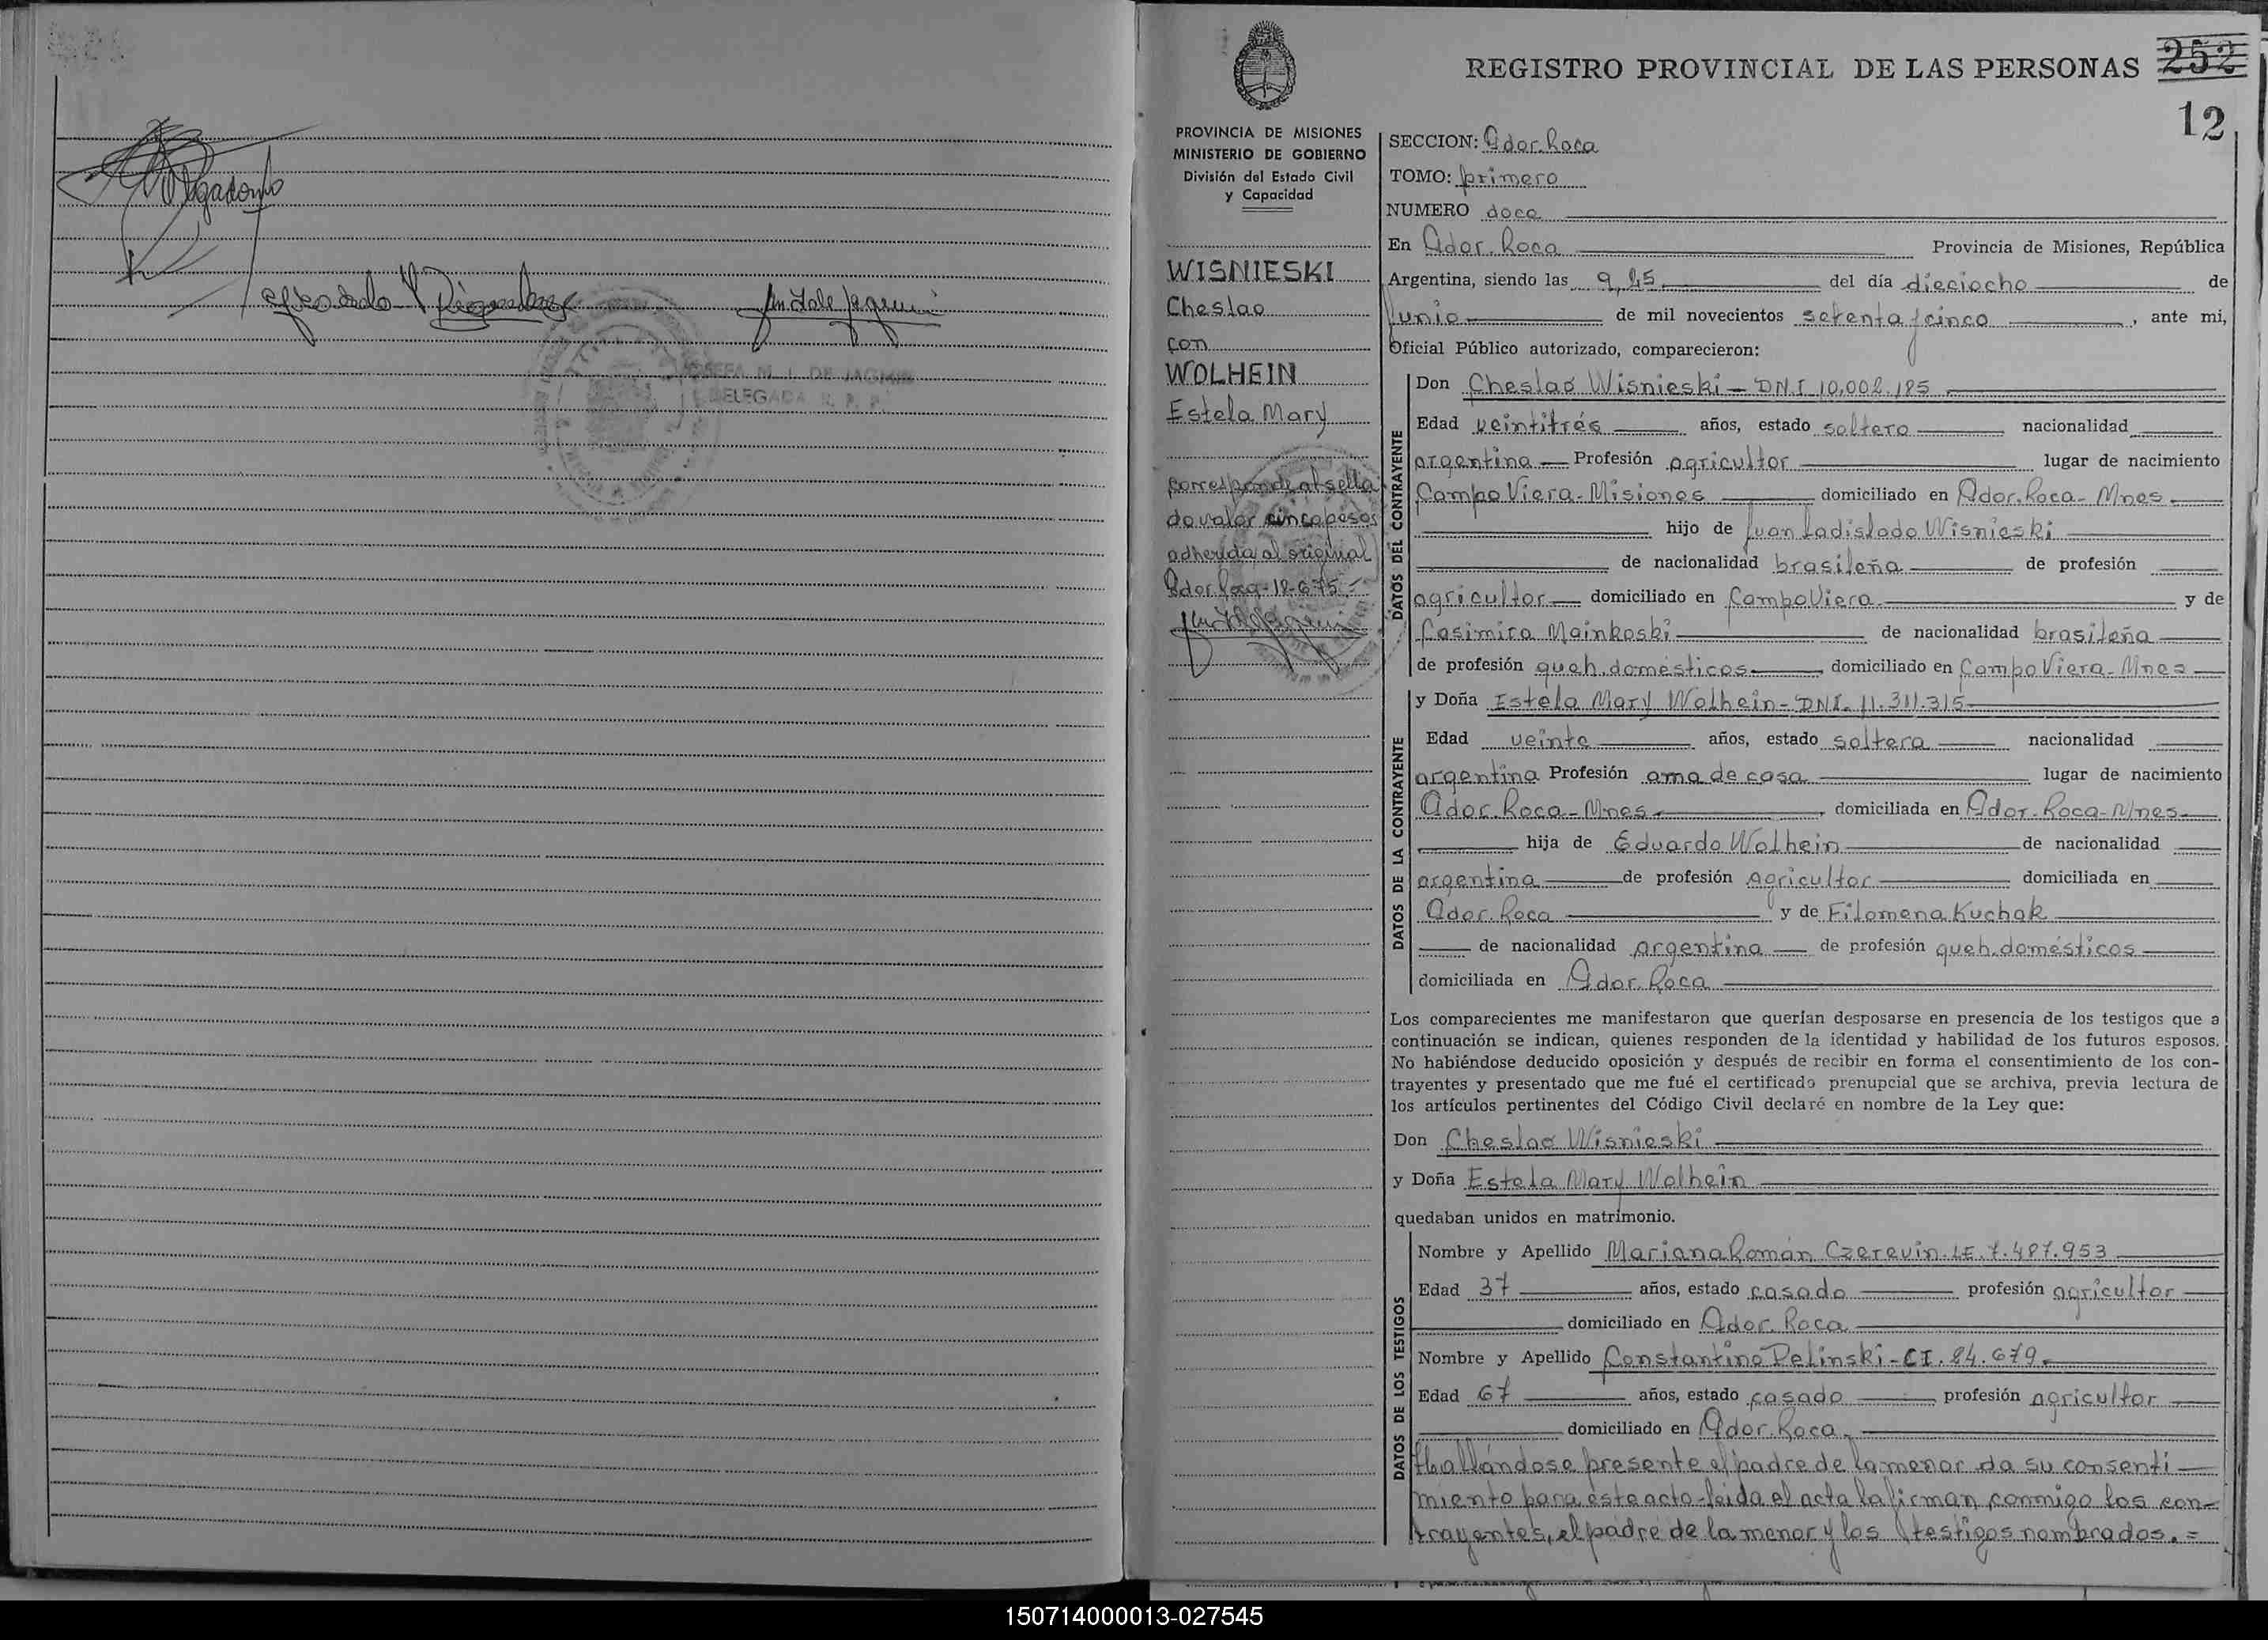 JOSEFA M. J. DE JAGMIN
DELEGADA R. P. P.
REGISTRO PROVINCIAL DE LAS PERSONAS 252
12
PROVINCIA DE MISIONES
MINISTERIO DE GOBIERNO
División del Estado Civil
y Capacidad
WISNIESKI
Cheslao
con
WOLHEIN
Estela Mary
corresponde al sella
do valor cinco pesos
adherida al original
Gdor. Roca-18-6-75.-
SECCION: Gdor. Roca
TOMO: primero
NUMERO doce
En Gdor. Roca Provincia de Misiones, República
Argentina, siendo las 9,45 del día dieciocho de
Junio de mil novecientos setenta y cinco, ante mi,
Oficial Público autorizado, comparecieron:
DATOS DEL CONTRAYENTE
Don Cheslao Wisnieski - DN.I 10.002.185
Edad veintitrés años, estado soltero nacionalidad
argentina Profesión agricultor lugar de nacimiento
Campo Viera-Misiones domiciliado en Gdor. Roca-Mnes
hijo de Juan Ladislado Wisnieski
de nacionalidad brasileña de profesión
agricultor domiciliado en Campo Viera y de
Casimira Mainkoski de nacionalidad brasileña
de profesión queh. domésticos domiciliado en Campo Viera-Mnes
DATOS DE LA CONTRAYENTE
y Doña Estela Mary Wolhein-DNI. 11.311.315
Edad veinte años, estado soltera nacionalidad
argentina Profesión ama de casa lugar de nacimiento
Gdor. Roca-Mnes. domiciliada en Gdor. Roca-Mnes.
hija de Eduardo Wolhein de nacionalidad
argentina de profesión Agricultor domiciliada en
Gdor. Roca y de Filomena Kuchak
de nacionalidad argentina de profesión queh. domésticos
domiciliada en Gdor. Roca
Los comparecientes me manifestaron que querían desposarse en presencia de los testigos que a
continuación se indican, quienes responden de la identidad y habilidad de los futuros esposos.
No habiéndose deducido oposición y después de recibir en forma el consentimiento de los con-
trayentes y presentado que me fué el certificado prenupcial que se archiva, previa lectura de
los artículos pertinentes del Código Civil declaré en nombre de la Ley que:
Don Cheslao Wisnieski
y Doña Estela Mary Wolhein
quedaban unidos en matrimonio.
DATOS DE LOS TESTIGOS
Nombre y Apellido Mariano Román Czerevin. LE. 7.487.953
Edad 37 años, estado casado profesión agricultor
domiciliado en Gdor. Roca
Nombre y Apellido Constantino Pelinski-CI. 84.679.
Edad 67 años, estado casado profesión agricultor
domiciliado en Gdor. Roca
Hallándose presente el padre de la menor da su consenti
miento para éste acto-leída el acta la firman conmigo los con-
trayentes, el padre de la menor y los testigos nombrados.=
150714000013-027545